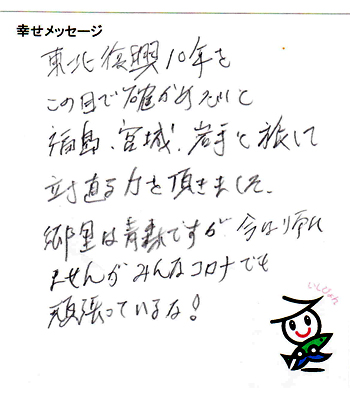 幸せメッセージ
東北復興10年を
この目で確かめたいと
福島、宮城、岩手と旅して
立ち直る力を頂きました。
郷里は青森ですが 今は帰れ
ませんが みんなコロナでも
頑張っているな!